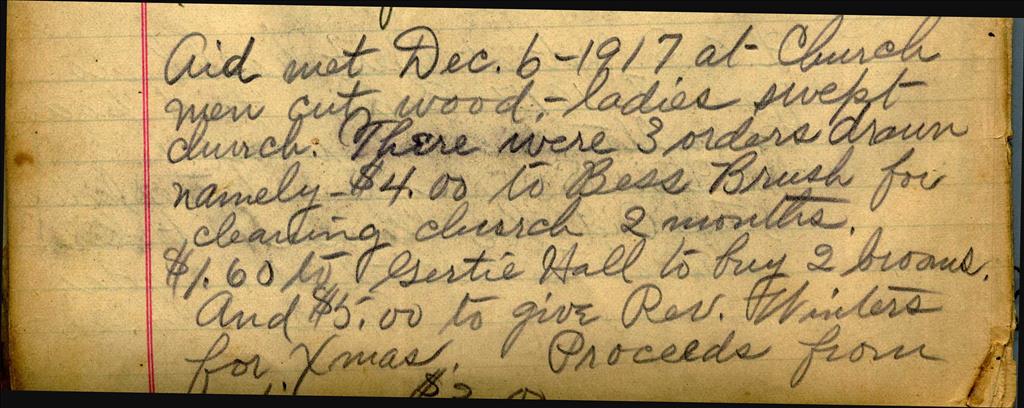 Aid met Dec. 6-1917 at Church
men cut wood, - ladies swept
church. There were 3 orders drawn
namely - $4.00 to Bess Brush for
cleaning church 2 months.
$1.60 to Gertie Hall to buy 2 brooms.
And $5.00 to give Rev. Winters
for Xmas. Proceeds from